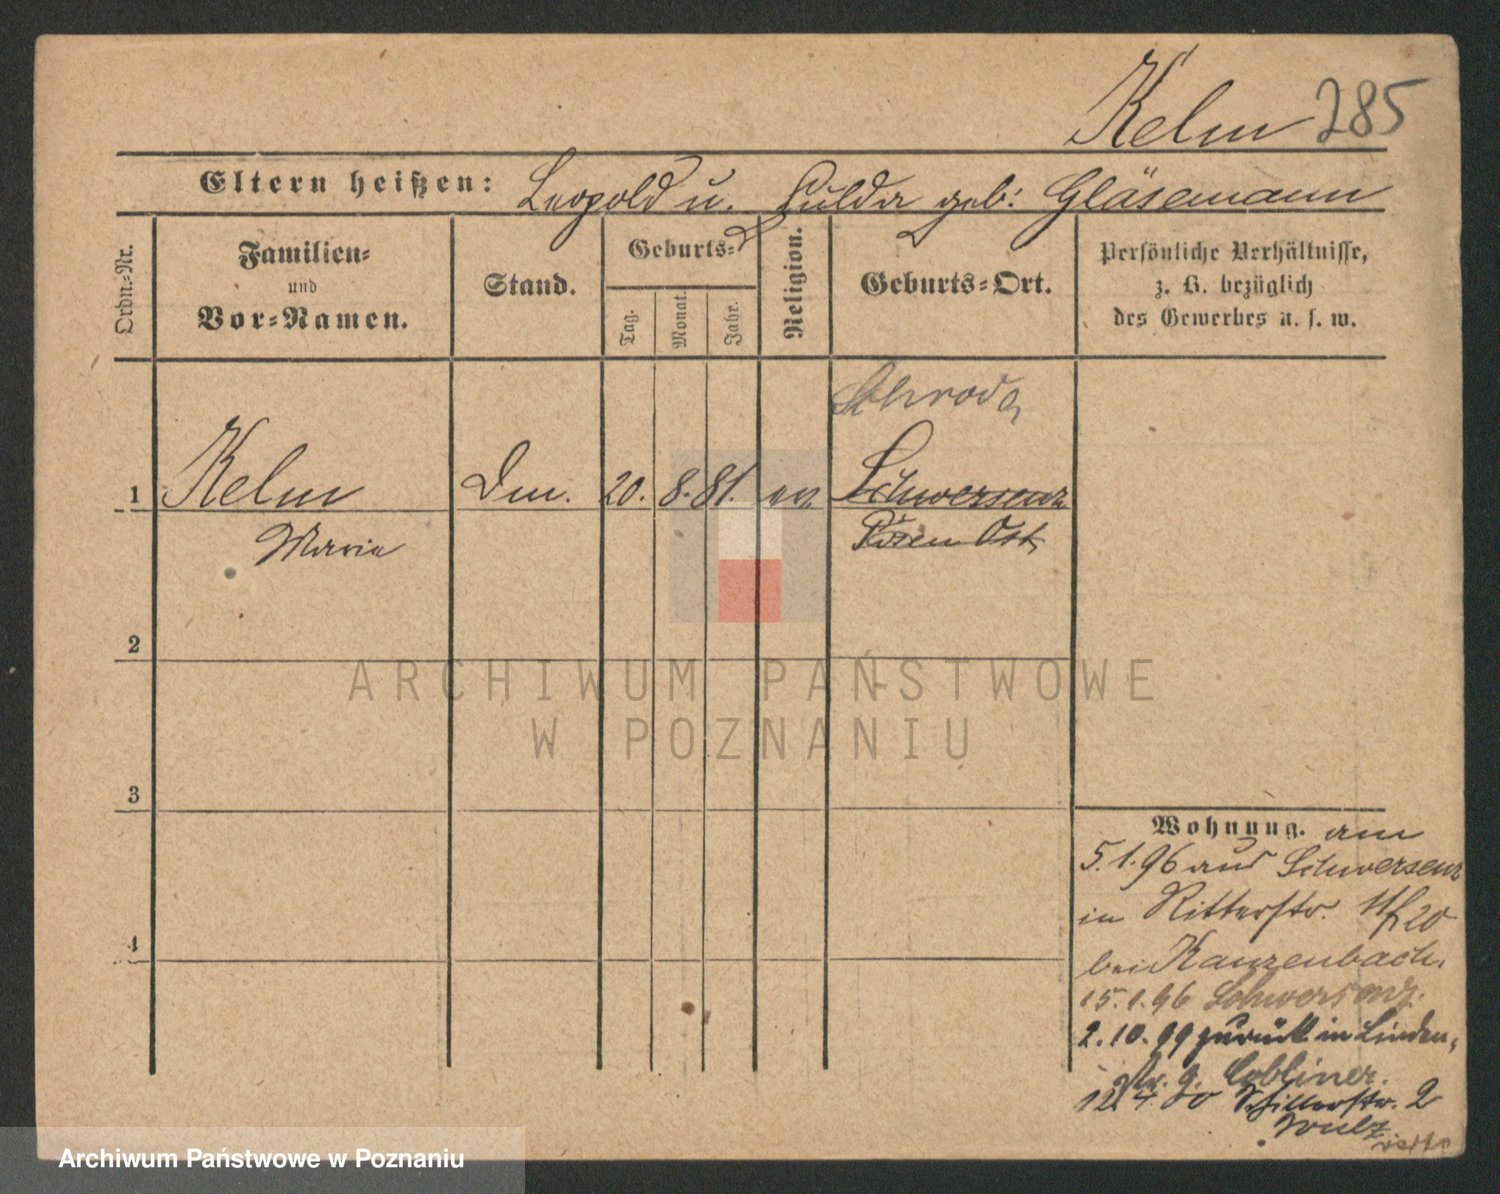 Kelm 285
Eltern heißen: Leopold u. Hulda geb: Gläsemann
Ordn.-Nr.
Familien-
und
Vor-Namen.
Stand.
Geburts-
Tag.
Monat.
Jahr.
Religion.
Geburts-Ort.
Persönliche Verhältnisse,
z. B. bezüglich
des Gewerbes u. s. w.
Schroda
1 Kelm Dm. 20. 8. 81. ev. Schwersenz
Marie Posen Ost
2
3
4
Wohnung. am
5.1.96 aus Schwersenz
in Ritterstr. 20
bei Kanzenbach.
15.1.96 Schwersenz.
2.10.99 zurück in Linden-
str. 9. Cobliner.
12.4.00 Schillerstr. 2
ARCHIWUM PAŃSTWOWE
W POZNANIU
Archiwum Państwowe w Poznaniu